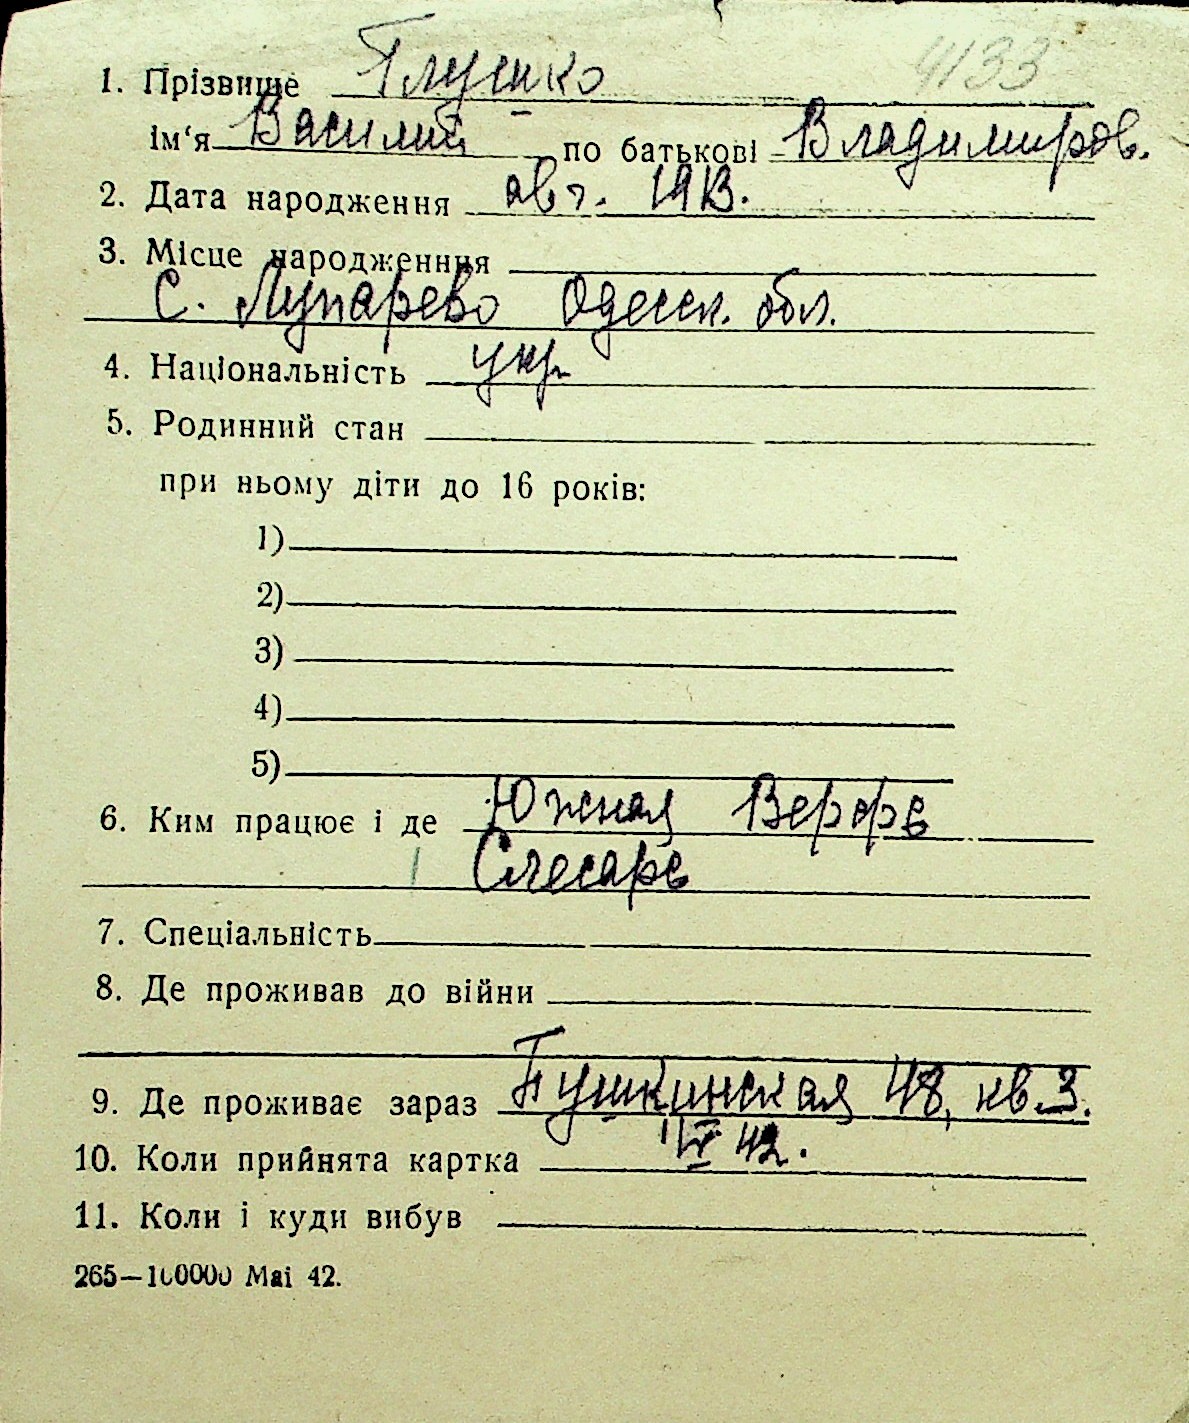 4133
1. Прізвище Глушко
ім'я Василий по батькові Владимиров.
2. Дата народження авг. 1913.
3. Місце народженння
с. Лупарево Одесск. обл.
4. Національність укр
5. Родинний стан
при ньому діти до 16 років:
1)
2)
3)
4)
5)
6. Ким працює і де Южная Верфь
Слесарь
7. Спеціальність
8. Де проживав до війни
9. Де проживає зараз Пушкинская 48, кв. 3.
10. Коли прийнята картка 42.
11. Коли і куди вибув
265—100000 Mai 42.